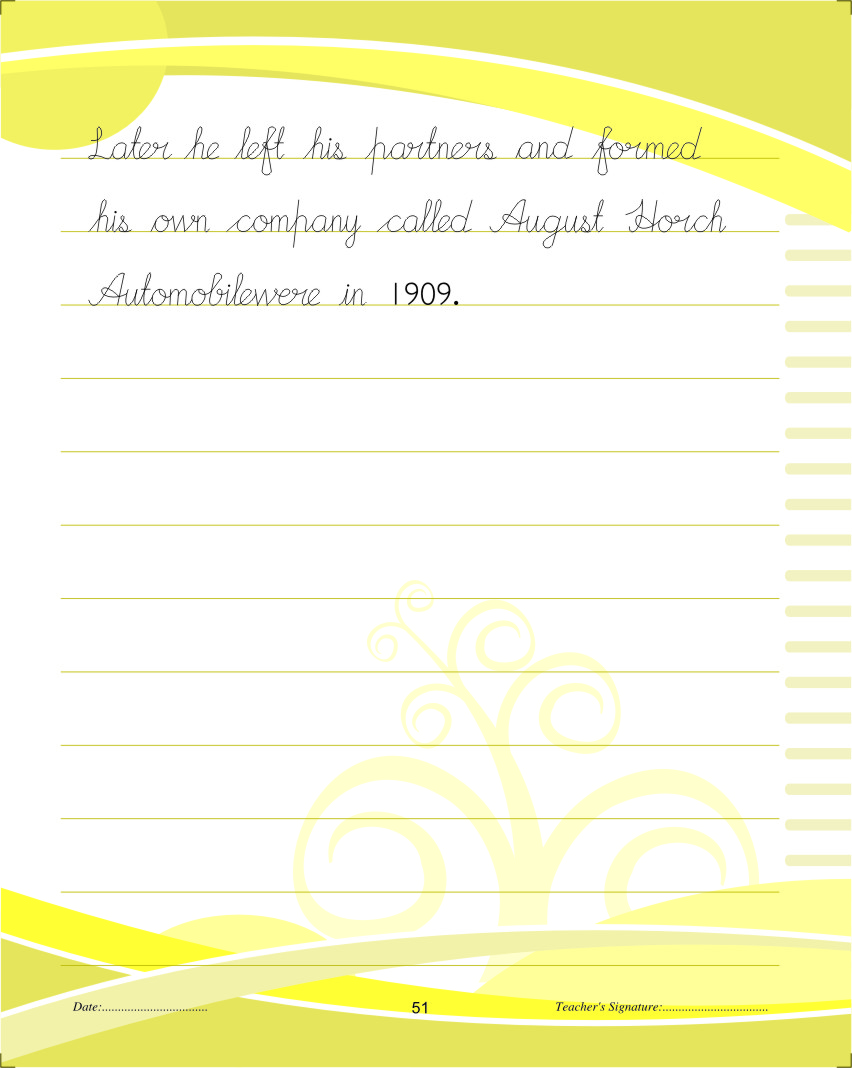 Later he left his partners and formed
his own company called August Horch
Automobilewere in 1909.
Date:................................. 51 Teacher's Signature:.................................